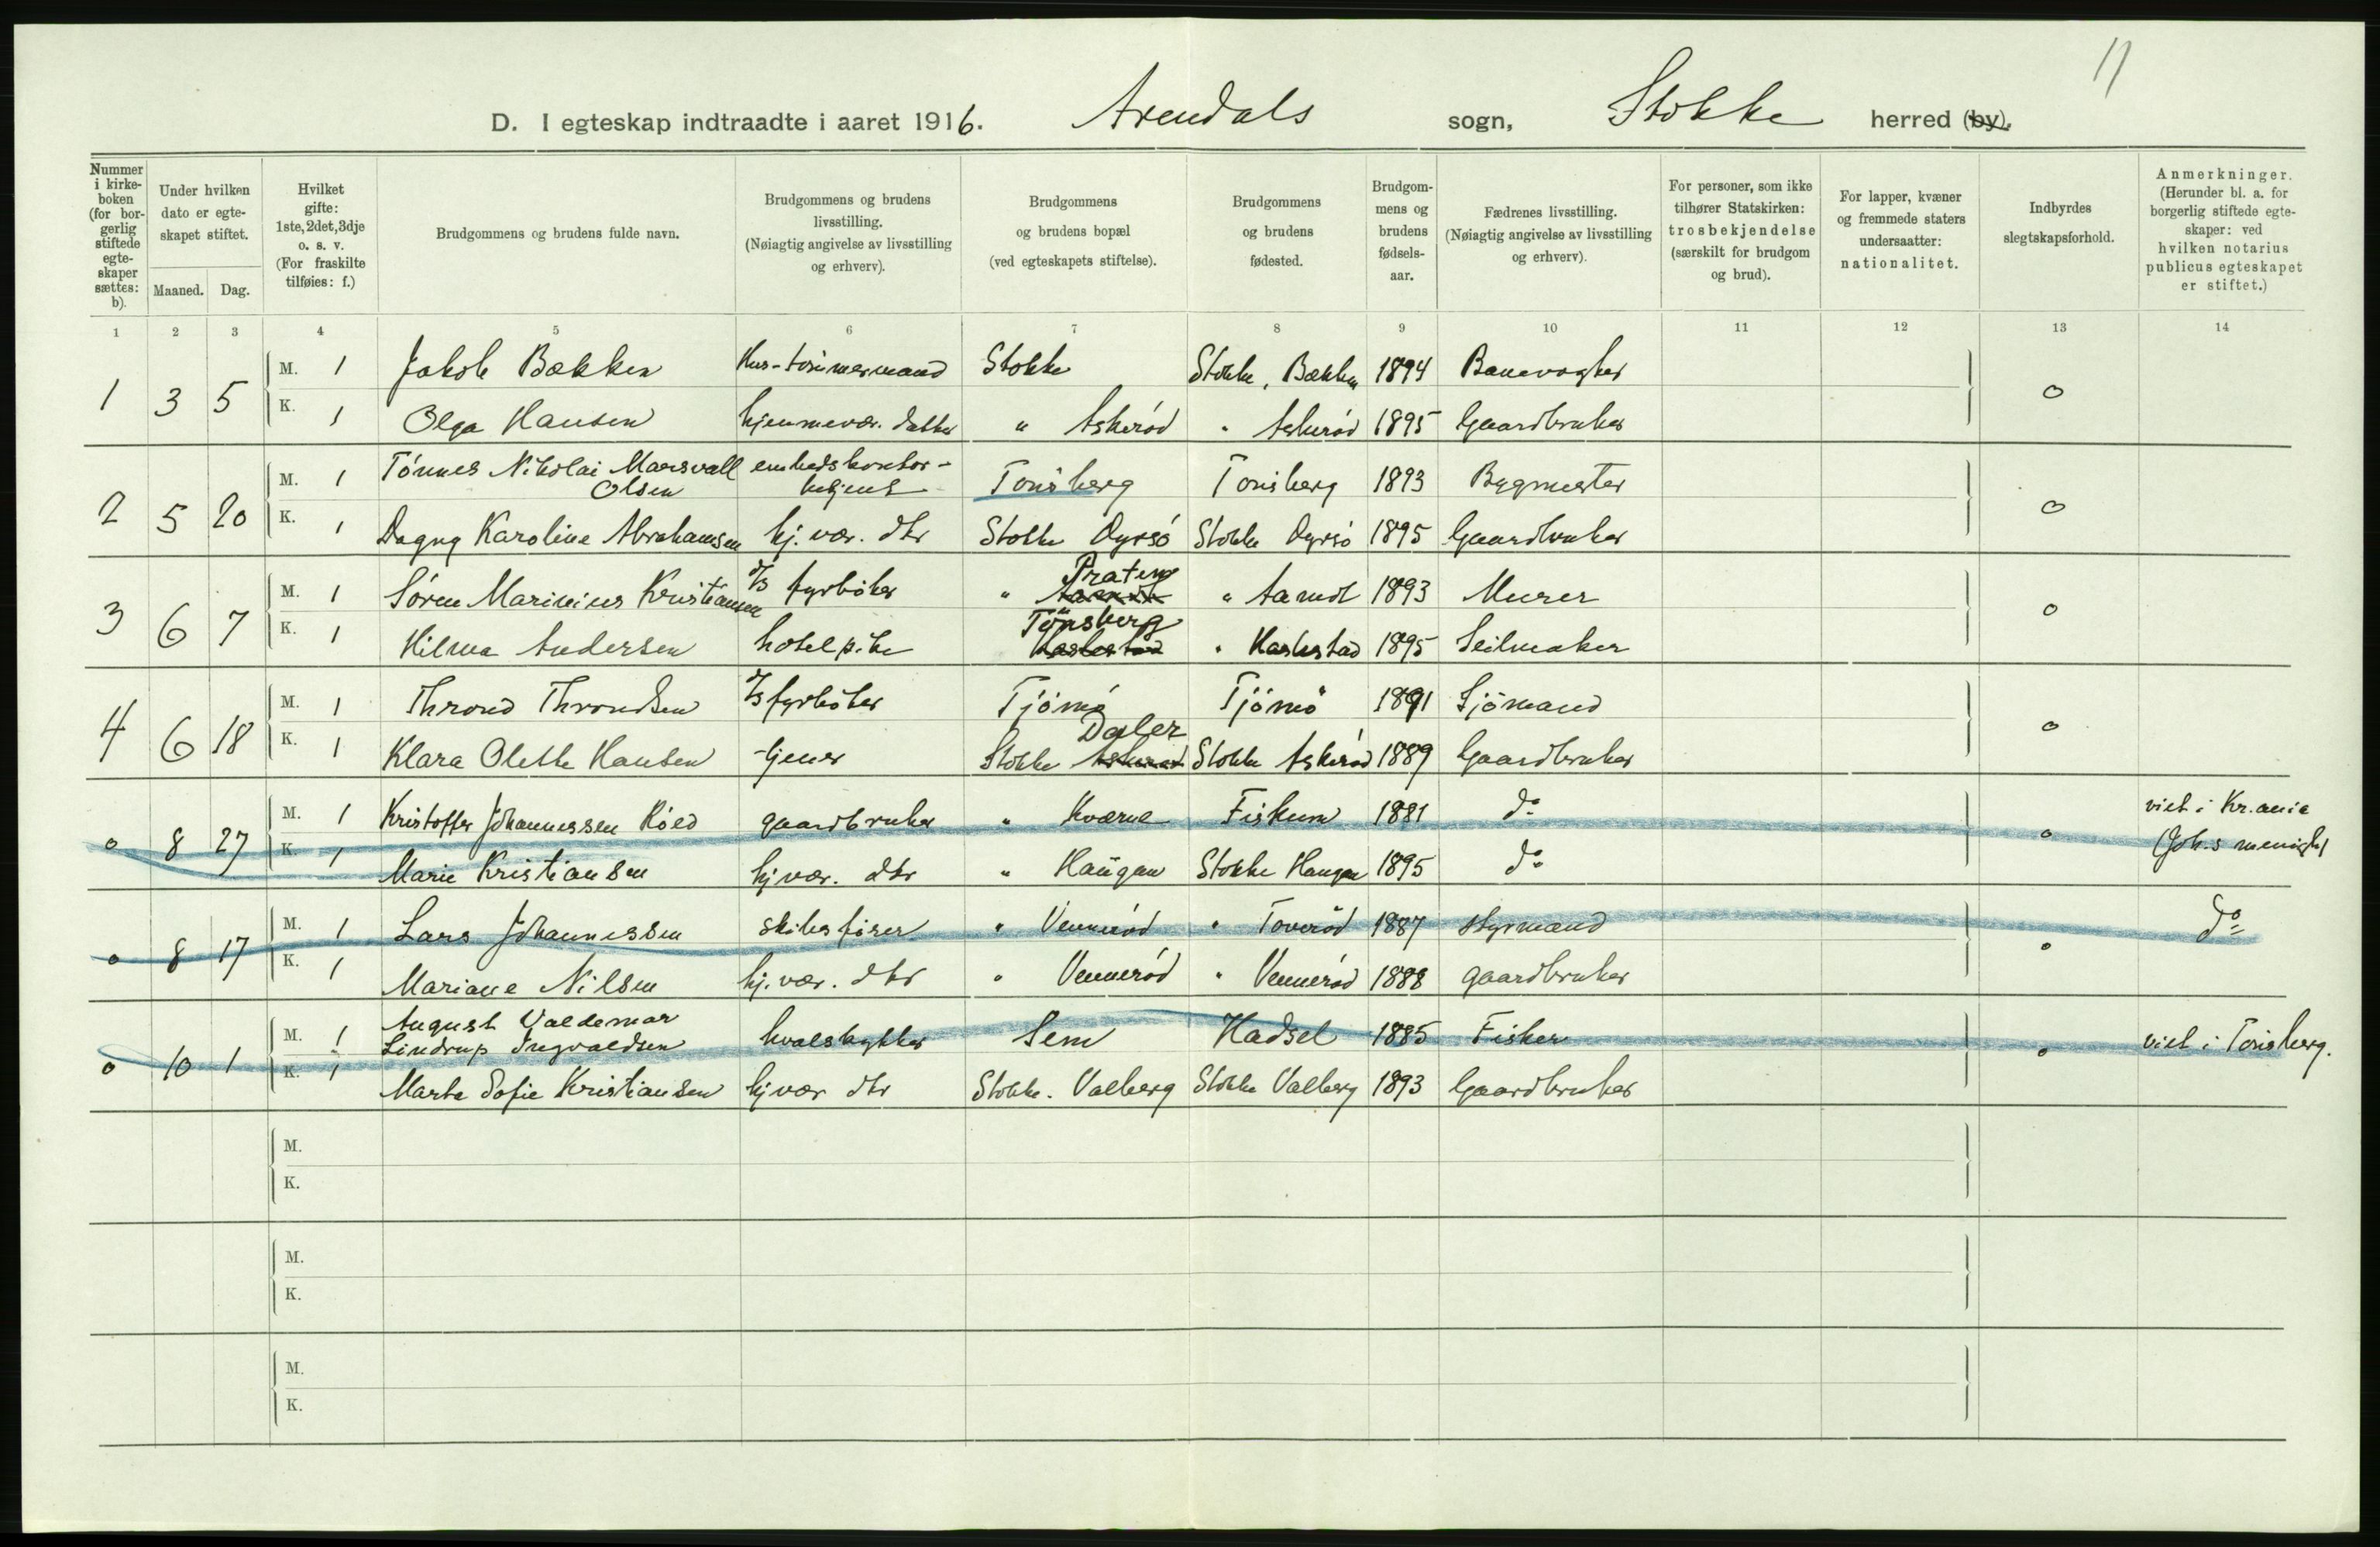 11
D. I egteskap indtraadte i aaret 1916. Arendals sogn, Stokke herred (by).
Nummer i kirke-boken (for bor-gerlig stiftede egte-skaper sættes: b).
Under hvilken dato er egte-skapet stiftet.
Maaned. Dag.
Hvilket gifte: 1ste, 2det, 3dje o. s. v. (For fraskilte tilføies: f.)
Brudgommens og brudens fulde navn.
Brudgommens og brudens livsstilling. (Nøiagtig angivelse av livsstilling og erhverv).
Brudgommens og brudens bopæl (ved egteskapets stiftelse).
Brudgommens og brudens fødested.
Brudgom-mens og brudens fødsels-aar.
Fædrenes livsstilling. (Nøiagtig angivelse av livsstilling og erhverv).
For personer, som ikke tilhører Statskirken: trosbekjendelse (særskilt for brudgom og brud).
For lapper, kvæner og fremmede staters undersaatter: nationalitet.
Indbyrdes slegtskapsforhold.
Anmerkninger. (Herunder bl. a. for borgerlig stiftede egte-skaper: ved hvilken notarius publicus egteskapet er stiftet.)
1 2 3 4 5 6 7 8 9 10 11 12 13 14
1 3 5 M. 1 Jakob Bækken Hus-tømmermand Stokke Stokke, Bækken 1894 Banevogter 0
K. 1 Olga Hansen hjemmevær. datter " Askerød " Askerød 1895 Gaardbruker
2 5 20 M. 1 Tönnes Nikolai Marsvall Olsen embedskontor-betjent Tönsberg Tönsberg 1893 Bygmester 0
K. 1 Dagny Karoline Abrahamsen hj. vær. dtr Stokke Dyrsö Stokke Dyrsö 1895 Gaardbruker
3 6 7 M. 1 Sören Marinius Kristiansen d/s fyrböter " Prateng " Aamot 1893 Murer 0
K. 1 Hilma Andersen hotelpike Tönsberg " Haslestad 1895 Seilmaker
4 6 18 M. 1 Thrond Throndsen d/s fyrböter Tjömö Tjömö 1891 Sjömand 0
K. 1 Klara Olette Hansen tjener Stokke Askerød Daler Stokke Askerød 1889 Gaardbruker
0 8 27 M. 1 Kristoffer Johannessen Röed gaardbruker " Kværne Fiskum 1881 do 0 viet i Kr.ania
K. 1 Marie Kristiansen hj vær. dtr " Haugan Stokke Haugan 1895 do (Joh.s menigh)
0 8 17 M. 1 Lars Johannessen skibsförer " Vennerød " Toverød 1887 styrmand 0 do
K. 1 Mariane Nilsen hj. vær. dtr " Vennerød " Vennerød 1888 gaardbruker
0 10 1 M. 1 August Valdemar Lindrup Ingvaldsen hvalskytter Sem Hadsel 1885 Fisker 0 viet i Tönsberg.
K. 1 Marta Sofie Kristiansen hj vær dtr Stokke. Valberg Stokke Valberg 1893 Gaardbruker
M.
K.
M.
K.
M.
K.